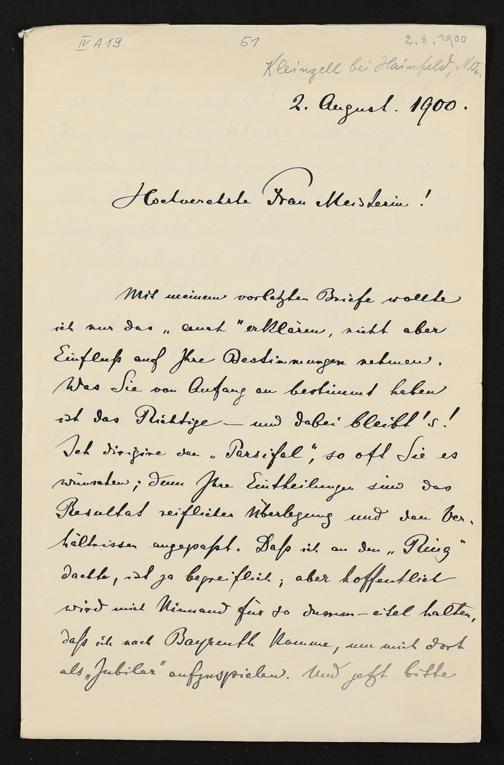 IV A 19 51 2.8.1900
Kleinzell bei Hainfeld, N.Ö.
2. August. 1900.
Hochverehrte Frau Meisterin!
Mit meinem vorletzten Briefe wollte
ich nur das „auch" erklären, nicht aber
Einfluß auf Ihre Bestimmungen nehmen.
Was Sie von Anfang an bestimmt haben
ist das Richtige – und dabei bleibt's!
Ich dirigire den „Parsifal", so oft Sie es
wünschen; denn Ihre Eintheilungen sind das
Resultat reiflicher Überlegung und den Ver-
hältnissen angepaßt. Daß ich an den „Ring"
dachte, ist ja begreiflich; aber hoffentlich
wird mich Niemand für so dumm-eitel halten,
daß ich nach Bayreuth komme, um mich dort
als „Jubilar" aufzuspielen. Und jetzt bitte